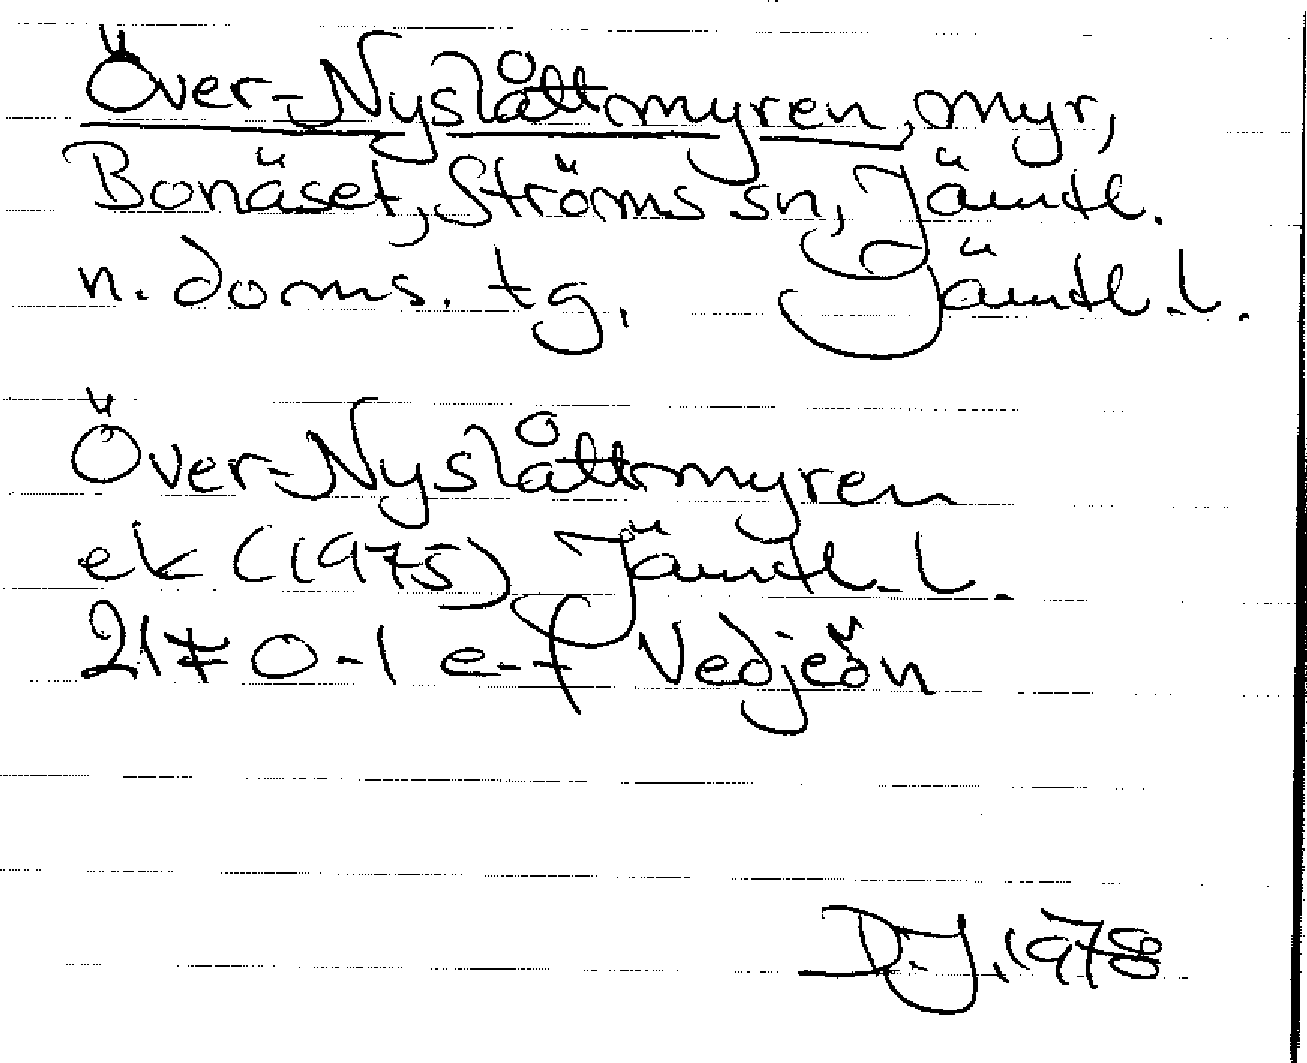 Över-Nyslåttmyren, myr,
Bonäset, Ströms sn, Jämtl.
n. doms. tg. Jämtl. l.
Över-Nyslåttmyren
ek (1975) Jämtl. l.
21F0-1 e-f Vedjeön
D.J. 1978